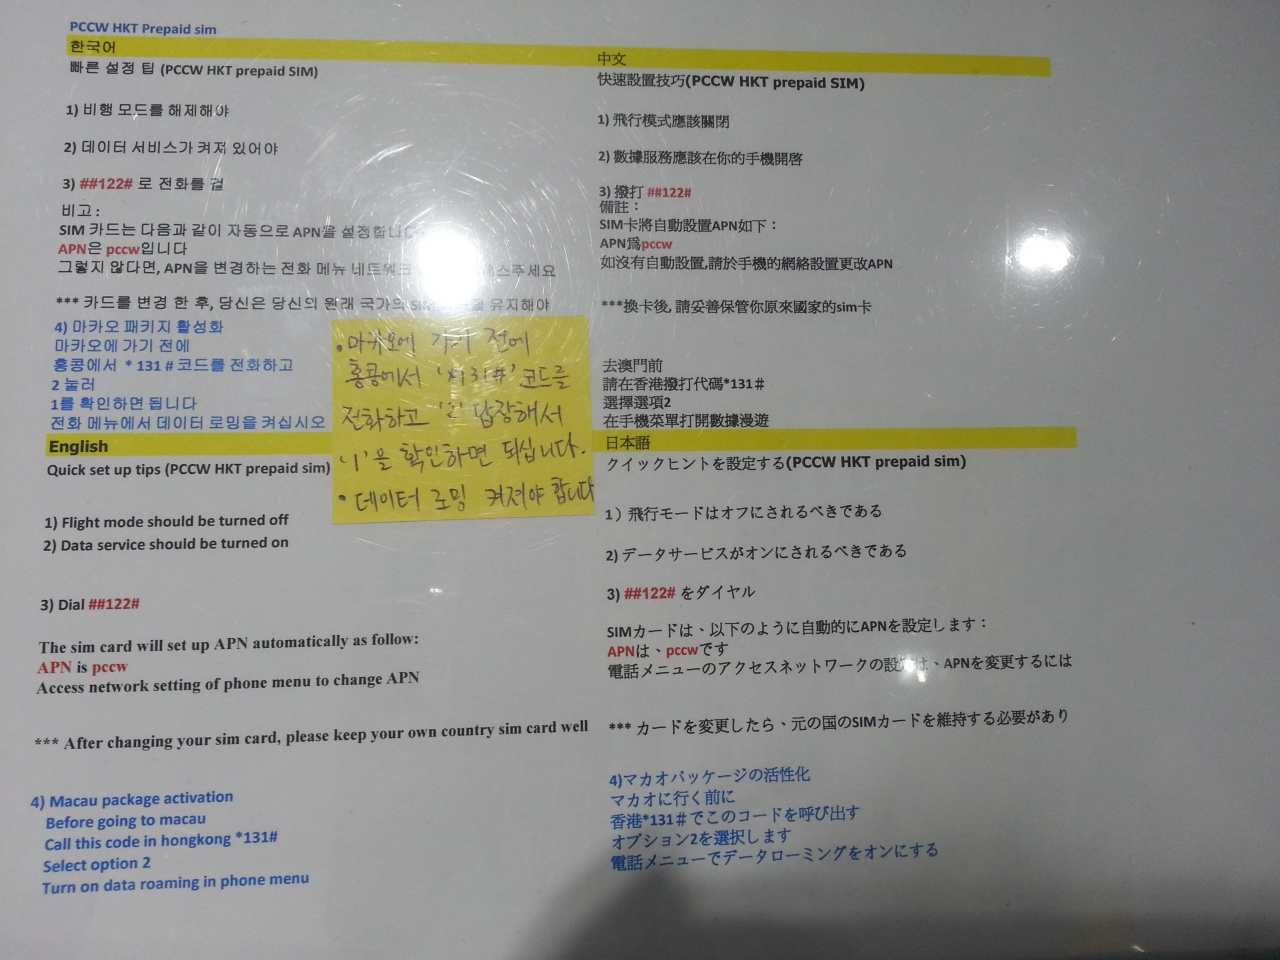 PCCW HKT Prepaid sim
한국어
빠른 설정 팁 (PCCW HKT prepaid SIM)
1) 비행 모드를 해제해야
2) 데이터 서비스가 켜져 있어야
3) ##122# 로 전화를 걸
비고 :
SIM 카드는 다음과 같이 자동으로 APN을 설정합니다
APN은 pccw입니다
그렇지 않다면, APN을 변경하는 전화 메뉴 네트워크 스주세요
*** 카드를 변경 한 후, 당신은 당신의 원래 국가의 SIM 유지해야
4) 마카오 패키지 활성화
마카오에 가기 전에
홍콩에서 * 131 # 코드를 전화하고
2 눌러
1를 확인하면 됩니다
전화 메뉴에서 데이터 로밍을 켜십시오
• 마카오에 가기 전에
홍콩에서 '*131#' 코드를
전화하고 '2' 답장해서
'1'을 확인하면 되십니다.
• 데이터 로밍 켜져야 합니다
中文
快速設置技巧(PCCW HKT prepaid SIM)
1) 飛行模式應該關閉
2) 數據服務應該在你的手機開啓
3) 撥打 ##122#
備註：
SIM卡將自動設置APN如下：
APN爲pccw
如沒有自動設置,請於手機的網絡設置更改APN
***換卡後, 請妥善保管你原來國家的sim卡
去澳門前
請在香港撥打代碼*131＃
選擇選項2
在手機菜單打開數據漫遊
English
Quick set up tips (PCCW HKT prepaid sim)
1) Flight mode should be turned off
2) Data service should be turned on
3) Dial ##122#
The sim card will set up APN automatically as follow:
APN is pccw
Access network setting of phone menu to change APN
*** After changing your sim card, please keep your own country sim card well
4) Macau package activation
Before going to macau
Call this code in hongkong *131#
Select option 2
Turn on data roaming in phone menu
日本語
クイックヒントを設定する(PCCW HKT prepaid sim)
1）飛行モードはオフにされるべきである
2) データサービスがオンにされるべきである
3) ##122# をダイヤル
SIMカードは、以下のように自動的にAPNを設定します：
APNは、pccwです
電話メニューのアクセスネットワークの設定は、APNを変更するには
*** カードを変更したら、元の国のSIMカードを維持する必要があり
4)マカオパッケージの活性化
マカオに行く前に
香港*131＃でこのコードを呼び出す
オプション2を選択します
電話メニューでデータローミングをオンにする